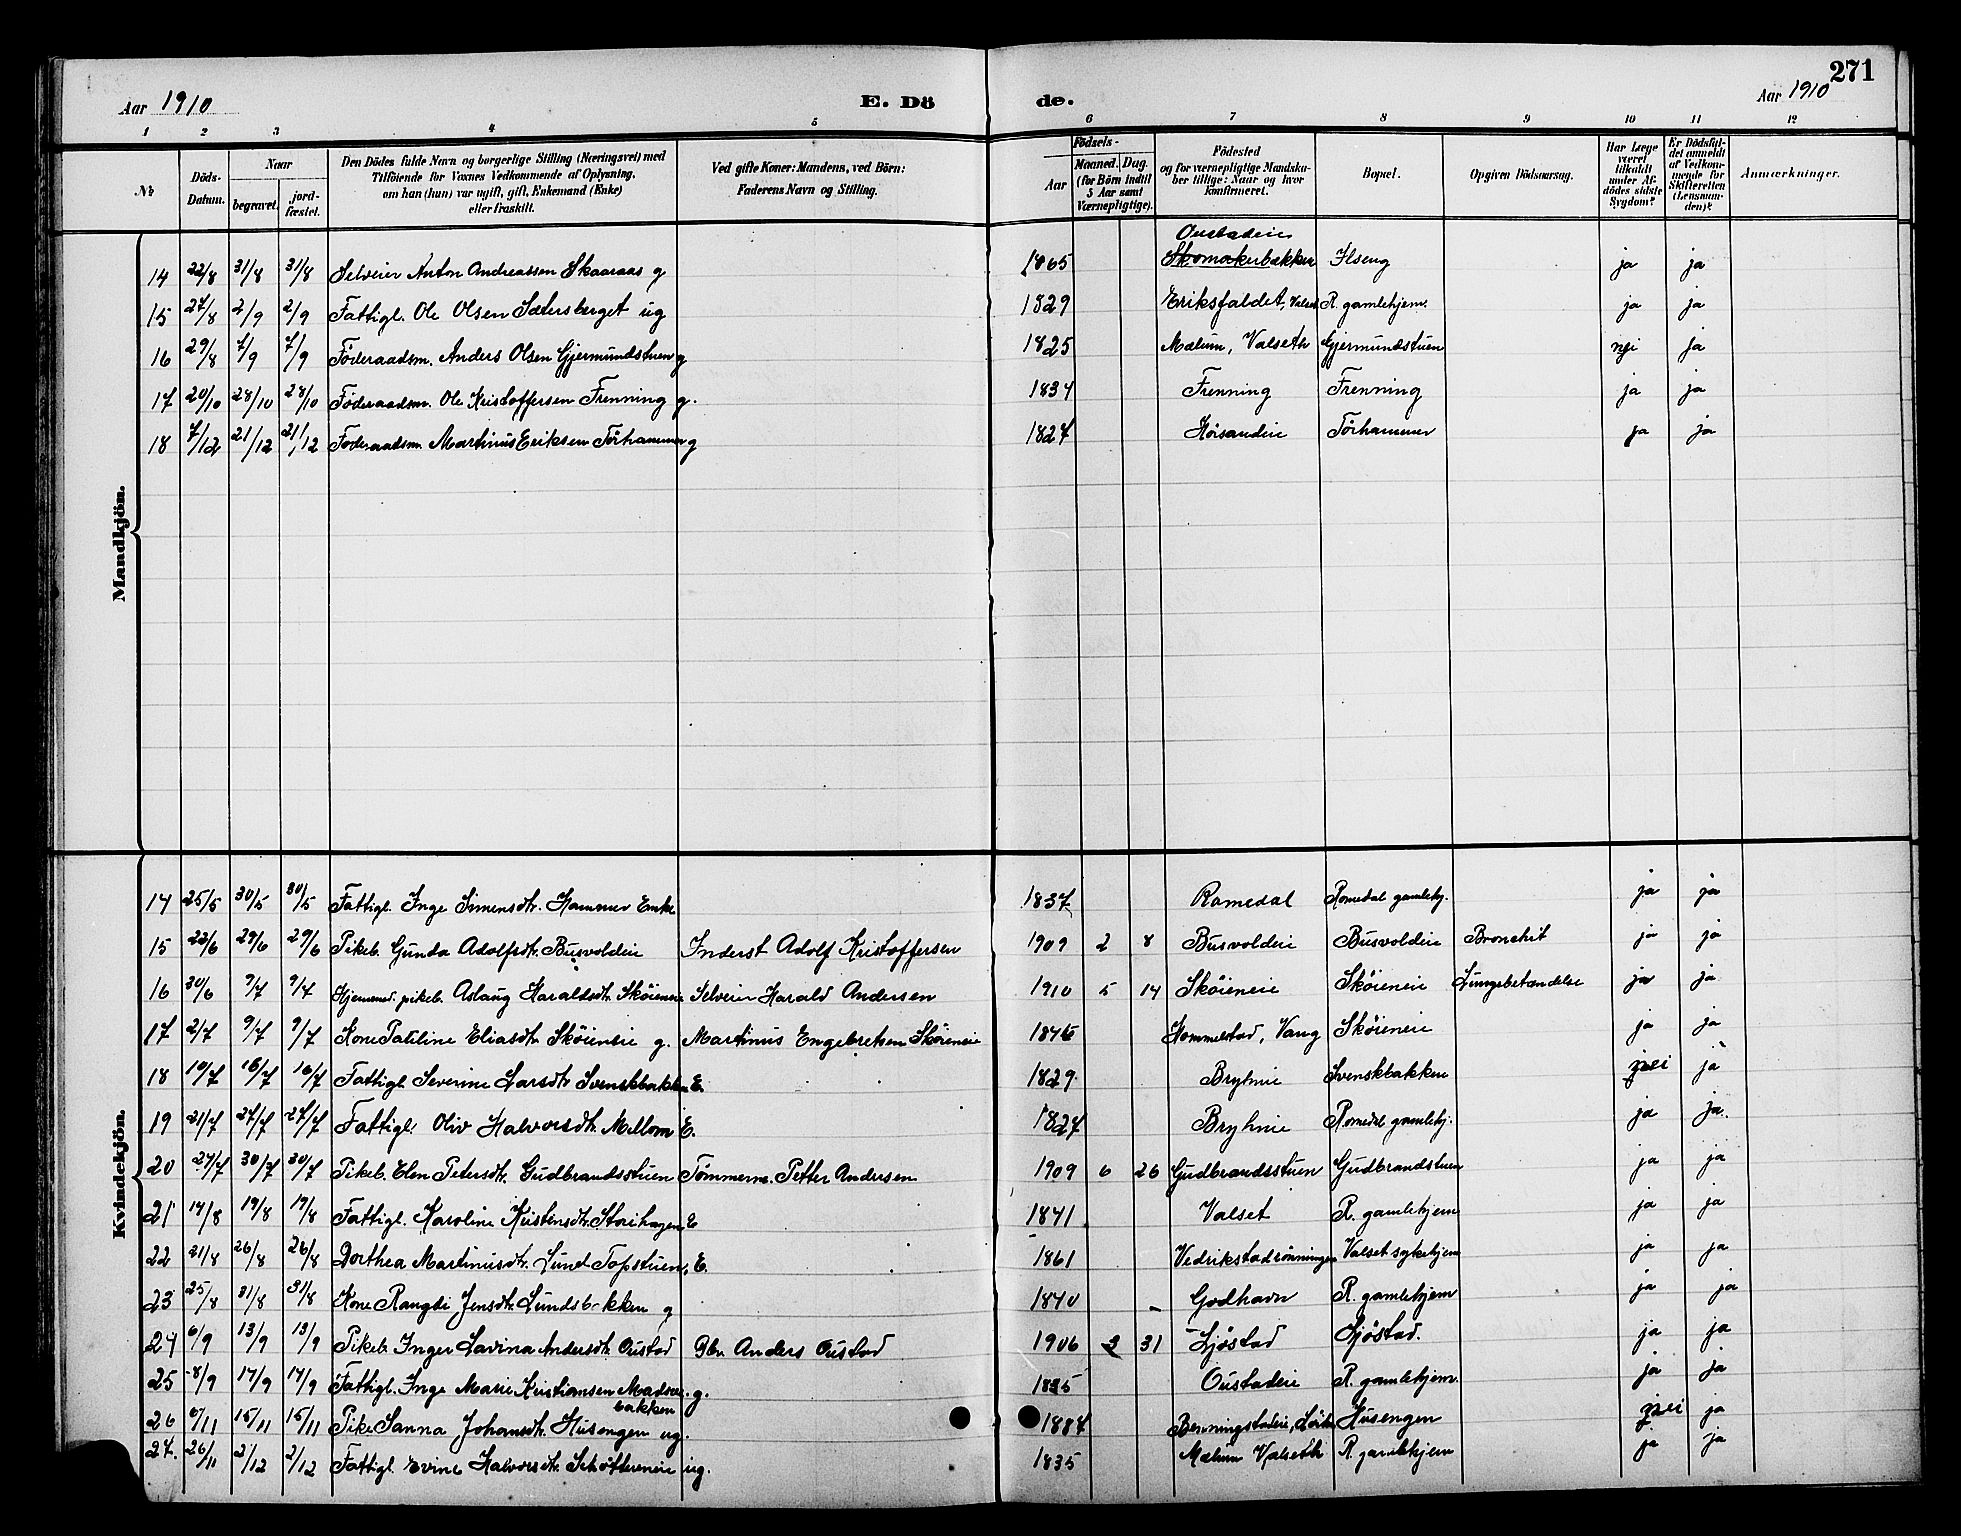 271
Aar 1910
E. Dö
de.
Aar 1910
1 2 3 4 5 6 7 8 9 10 11 12
No
Döds-Datum.
Naar
begravet.
jordfæstet.
Den Dödes fulde Navn og borgerlige Stilling (Næringsvei) med
Tilföiende for Voxnes Vedkommende af Oplysning,
om han (hun) var ugift, gift, Enkemand (Enke)
eller fraskilt.
Ved gifte Koner: Mandens, ved Börn:
Faderens Navn og Stilling.
Födsels-
Aar
Maaned. Dag.
(for Börn indtil
5 Aar samt
Værnepligtige).
Födested
og for værnepligtige Mandska-
ber tillige: Naar og hvor
konfirmeret.
Bopæl.
Opgiven Dödsaarsag.
Har Læge
været
tilkaldt
under Af-
dödes sidste
Sygdom?
Er Dödsfal-
det anmeldt
af Vedkom-
mende for
Skifteretten
(Lensman-
den)?
Anmærkninger.
Mandkjön.
Oustadeie
14 22/8 31/8 31/8 Selveier Anton Andreassen Skaaraas g 1865 Skomakerbakken Ilseng ja ja
15 27/8 2/9 2/9 Fattigl. Ole Olsen Sætersberget ug 1829 Eriksfaldet, Valset R. gamlehjem. ja ja
16 29/8 7/9 7/9 Föderaadsm. Anders Olsen Gjermundstuen g 1825 Mælum, Valseth Gjermundstuen nei ja
17 20/10 28/10 28/10 Föderaadsm. Ole Kristoffersen Frenning g. 1834 Frenning Frenning ja ja
18 7/12 21/12 21/12 Föderaadsm. Martinus Eriksen Törhammer g 1827 Höisandeie Törhammer ja ja
Kvindekjön.
14 25/5 30/5 30/5 Fattigl. Inge Simensdtr. Hammer Enke 1837 Romedal Romedal gamlehj. ja ja
15 23/6 29/6 29/6 Pikeb. Gunda Adolfsdtr. Busvoldeie Inderst Adolf Kristoffersen 1909 2 8 Busvoldeie Busvoldeie Bronchit ja ja
16 30/6 9/7 9/7 Hjemmed. pikeb. Aslaug Haraldsdtr. Sköieneie Selveier Harald Andersen 1910 5 14 Sköieneie Sköieneie Lungebetændelse ja ja
17 2/7 9/7 9/7 Kone Pauline Eliasdtr. Sköieneie g. Martinus Engebretsen Sköieneie Hommelstad, Vang Sköieneie ja ja
18 10/7 16/7 16/7 Fattigl. Severine Larsdtr. Svenskbakken E. 1829 Bryhnie Svenskbakken nei ja
19 21/7 27/7 27/7 Fattigl. Oliv Halvorsdtr. Mellom E. 1827 Bryhnie Romedal gamlehj. ja ja
20 24/7 30/7 30/7 Pikeb. Elen Petersdtr. Gudbrandsstuen Tömmerm. Petter Andersen 1909 6 26 Gudbrandsstuen Gudbrandstuen ja ja
21 14/8 19/8 19/8 Fattigl. Karoline Kristensdtr. Storihagen E 1841 Valset R. gamlehjem ja ja
22 21/8 26/8 26/8 Dorthea Martinusdtr. Lund Topstuen, E. 1861 Vedrikstadrönningen Valset sykehjem ja ja
23 25/8 31/8 31/8 Kone Rangdi Jensdtr. Lundsbakken g 1840 Godhavn R. gamlehjem ja ja
24 6/9 13/9 13/9 Pikeb. Inger Lavina Andersdtr. Oustad Gbr. Anders Oustad 1906 3 31 Ljöstad Ljöstad. ja ja
25 8/9 17/9 17/9 Fattigl. Inge Marie Kristiansen Madser- g. 1835 Oustadeie R. gamlehjem. ja ja
bakken
26 6/11 15/11 15/11 Pike Sanna Johansdtr. Husengen ug. 1887 Benningstadeie, Löiten Husengen nei ja
27. 26/11 2/12 2/12 Fattigl. Evine Halvorsdtr. ug. 1835 Mælum Valseth R. gamlehjem ja ja